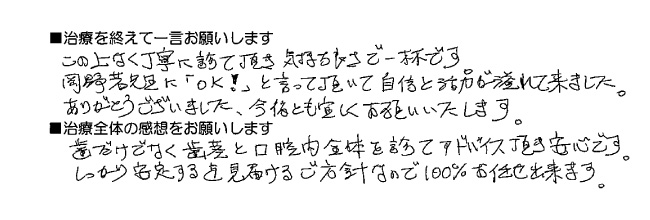 ■治療を終えて一言お願いします
この上なく丁寧に診て頂き気持ち良さで一杯です
岡野先生に「OK!」と言って頂いて自信と活力が溢れて来ました。
ありがとうございました、今後とも宜しくお願いいたします。
■治療全体の感想をお願いします
歯だけでなく歯茎と口腔内全体を診てアドバイス頂き安心です。
しっかり安定する迄見届けるご方針なので100%お任せ出来ます。